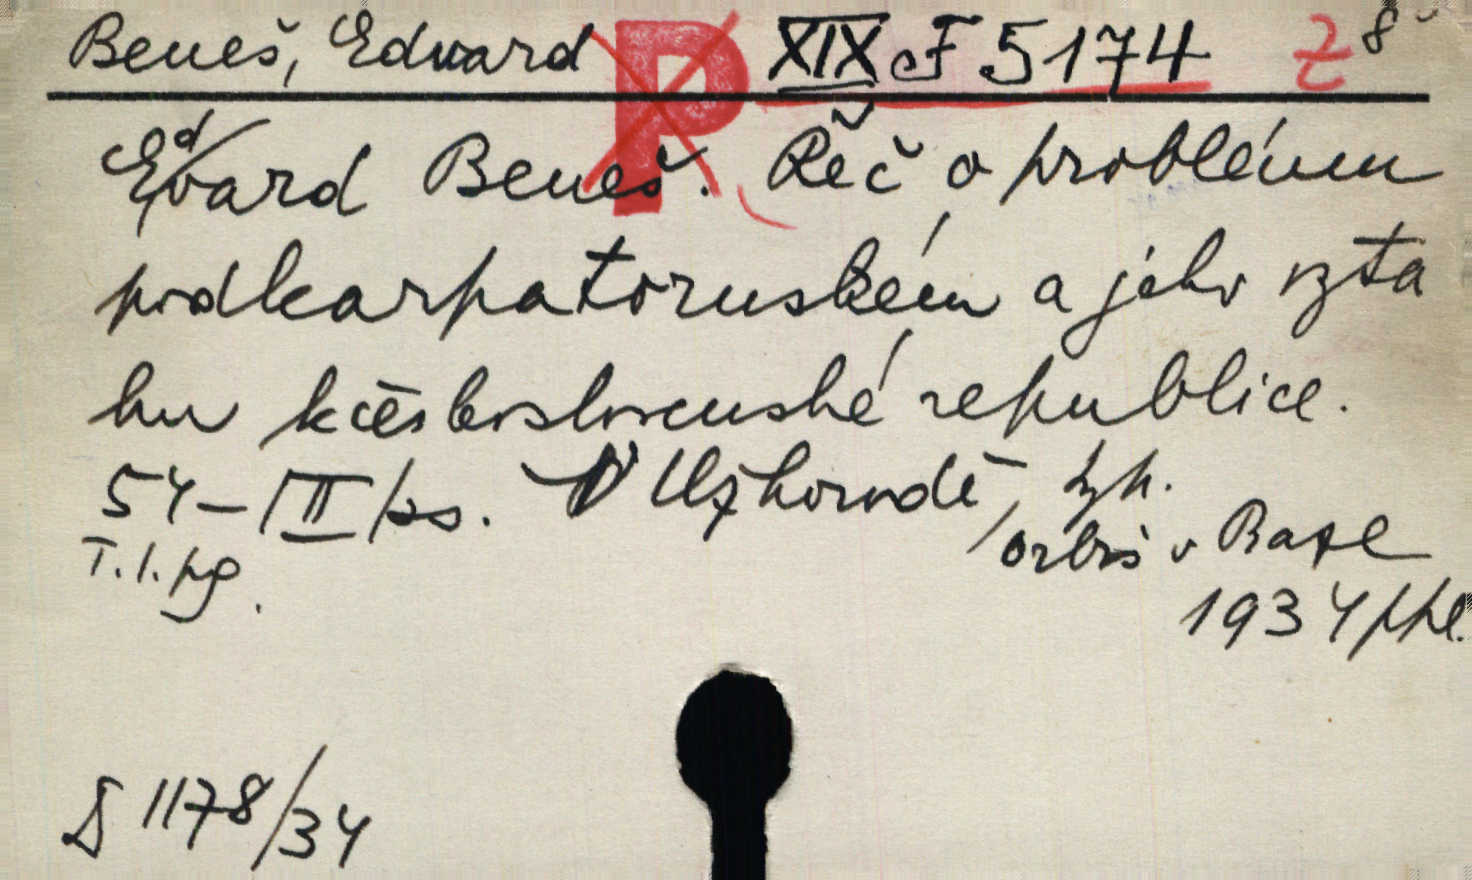 Beneš, Edvard P XIX F 5174 Z 8°
Edvard Beneš. Řeč o problému
podkarpatoruském a jeho vzta
hu k československé republice.
54-/III/ss. V Užhorodě, typ.
Orbis v Praze
T. l. pg.
1934 ppl.
D 1178/34